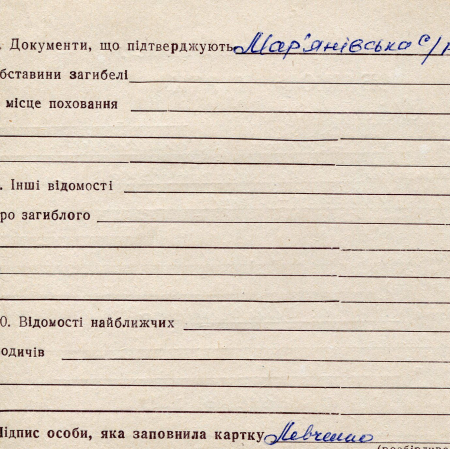 . Документи, що підтверджують Мар'янівська с/р
бставини загибелі
місце поховання
. Інші відомості
ро загиблого
0. Відомості найближчих
одичів
Підпис особи, яка заповнила картку Левченко